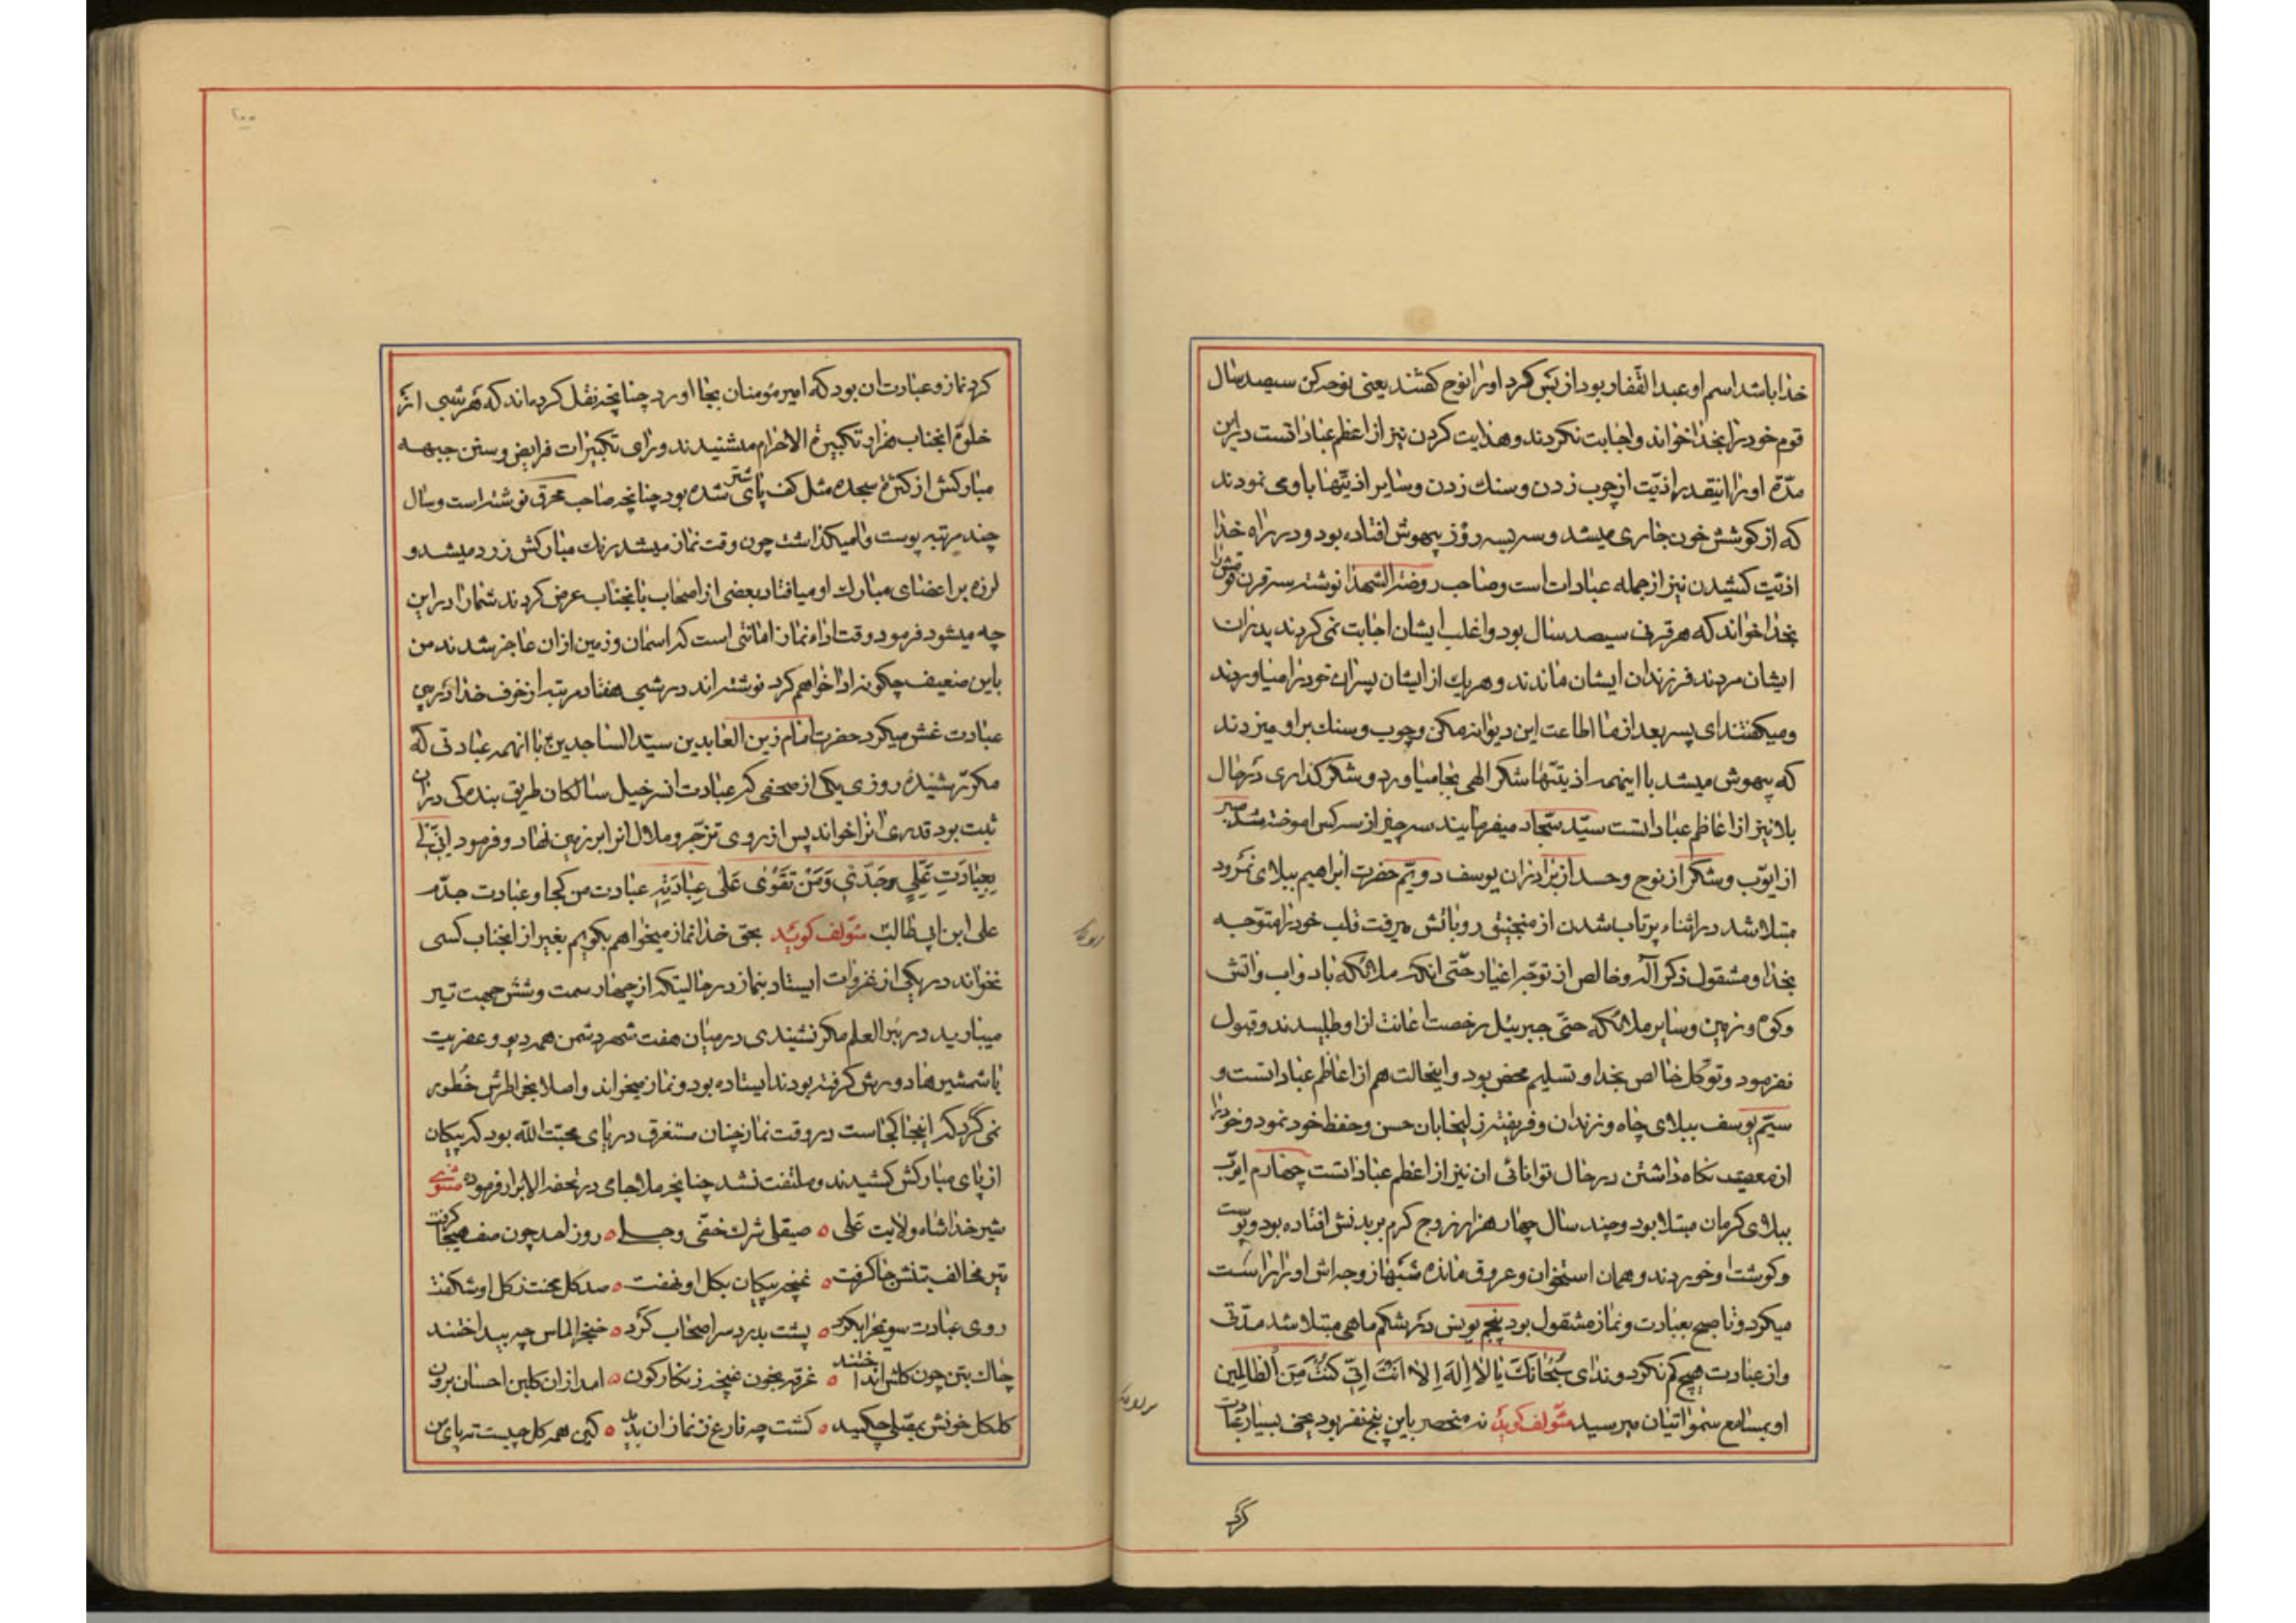 خدا باشد اسم او عبد الغفار بود از بس كرد او را نوح كفتند يعنى نوحه كن سيصد سال
قوم خود را بخدا خواند و اجابت نكردند و هدايت كردن نيز از اعظم عباداتست در اين
مدّة او را اينقدر اذيّت از چوب زدن و سنك زدن و ساير اذيّتها باو مى نمودند
كه از كوشش خون جارى ميشد و سه بسه روز بيهوش افتاده بود و در راه خدا
اذيّت كشيدن نيز از جمله عبادات است و صاحب روضة الشهدا نوشته سه قرن قومش را
بخدا خواند كه هر قرنى سيصد سال بود و اغلب ايشان اجابت نمى كردند پدران
ايشان مردند فرزندان ايشان ماندند و هر يك از ايشان پسران خود را مياوردند
و ميكفتند اى پسر بعد از ما اطاعت اين ديوانه مكن و چوب و سنك بر او ميزدند
كه بيهوش ميشد با اينهمه اذيتها شكر الهى بجا مياورد و شكر گذارى در حال
بلا نيز از اعاظم عباداتست سيّد سجّاد ميفرمايند سه چيز از سه كس اموخته شد صبر
از ايّوب و شكر از نوح و حسد از برادران يوسف دويّم حضرت ابراهيم ببلاى نمرود
مبتلا شد در اثناء پرتاب شدن از منجنيق رو باتش ميرفت قلب خود را متوّجه
بخدا و مشقول ذكر آله و خالص از توجّه اغيار حتّى انكه ملائكه باد و اب و اتش
و كوه و زمين و ساير ملائكه حتّى جبرييل رخصت اعانت از او طلبيدند و قبول
نفرمود و توكّل خالص بخدا و تسليم محض بود و اينحالت هم از اعاظم عباداتست و
سيّم يوسف ببلاى چاه و زندان و فريفته زليخا بان حسن و حفظ خود نمود و خود را
از معصيت نكاه داشتن در حال توانائى ان نيز از اعظم عباداتست چهارم ايوّب
ببلاى كرمان مبتلا بود و چند سال چهار هزار زوج كرم بر بدنش افتاده بود و پوست
و كوشت او خوردند و همان استخوان و عروق مانده شبها زوجه اش او را راست
ميكرد و تا صبح بعبادت و نماز مشقول بود پنجم يونس در شكم ماهى مبتلا شد مدّتى
و از عبادت هيچ كم نكرد و نداى سُبْحَانَكَ يا لا اِلهَ اِلا اَنْتَ اِنّى كُنْتُ مِنَ الظالِمين
او بمسامع سمواتيان ميرسيد مؤلف كويد نه منحصر باين پنج نفر بود يعنى بسيار عبادت
كرد
كرد نماز و عبادت ان بود كه امير مؤمنان بجا اورد چنانچه نقل كرده اند كه هر شبى از
خلوة انجناب هزار تكبيرة الاحرام ميشنيدند وراى تكبيرات فرايض و سنن جبهه
مباركش از كثرة سجده مثل كف پاى شتر شده بود چنانچه صاحب محرق نوشته است و سال
چند مرتبه پوست وا ميكذاشت چون وقت نماز ميشد رنك مباركش زرد ميشد و
لرزه بر اعضاى مبارك او ميافتاد بعضى از اصحاب بانجناب عرض كردند شما را در اين
چه ميشود فرمود وقت اداء نماز امانتى است كه اسمان و زمين از ان عاجز شدند من
باين ضعيف چكونه ادا خواهم كرد نوشته اند در شبى هفتاد مرتبه از خوف خدا در پى
عبادت غش ميكرد حضرت امام زين العابدين سيّد الساجدين با انهمه عبادتى كه
مكرّر شنيده روزى يكى از صحفى كه عبادت انسرخيل سالكان طريق بنده كى در ان
ثبت بود قدرى انرا خواند پس از روى تزجّر و ملال انرا بر زمين نهاد و فرمود اِنّى لى
بِعِبادَتِ عَلّىٍ جَدّى وَمَنْ تَقَوّى عَلى عِبادَتِهِ عبادت من كجا و عبادت جدّم
على ابن ابيطالب مؤلف كويد بحق خدا نماز ميخواهم بكويم بغير از انجناب كسى
نخواند در يكى از غزوات ايستاد بنماز در حاليتكه از چهار سمت و شش جهت تير
ميباريد در بئر العلم مكر نشنيدى در ميان هفت شهر دشمن همه ديو و عفريت
با شمشيرها دورش كرفته بودند ايستاده بود و نماز ميخواند و اصلا بخواطرش خُطور
نمى كرد كه اينجا كجاست در وقت نماز چنان مستغرق درياى محبّت اللّه بود كه پيكان
از پاى مباركش كشيدند و ملتفت نشد چنانچه ملا جامى در تحفه الابرار فرموده مثنوى
شير خدا شاه ولايت عَلى ه صيقلى شرك خفّى و جلى ه روز احد چون صف هيجا كرفت
تير مخالف بتنش جا كرفت ه غنچه پيكان بكل او نهفت ه صد كل محنت ز كل او شكفت
روى عبادت سوى محراب كرد ه پشت بدرد سر اصحاب كرد ه خنجر الماس چه بيداختند
چاك بتن چون كلش انداختند ه غرقه بخون غنچه زنكار كون ه امد از ان كلبن احسان برون
كلكل خونش بمصّلى چكيد ه كشت چه فارغ ز نماز ان بديد ه كين همه كل چيست ته پاى من